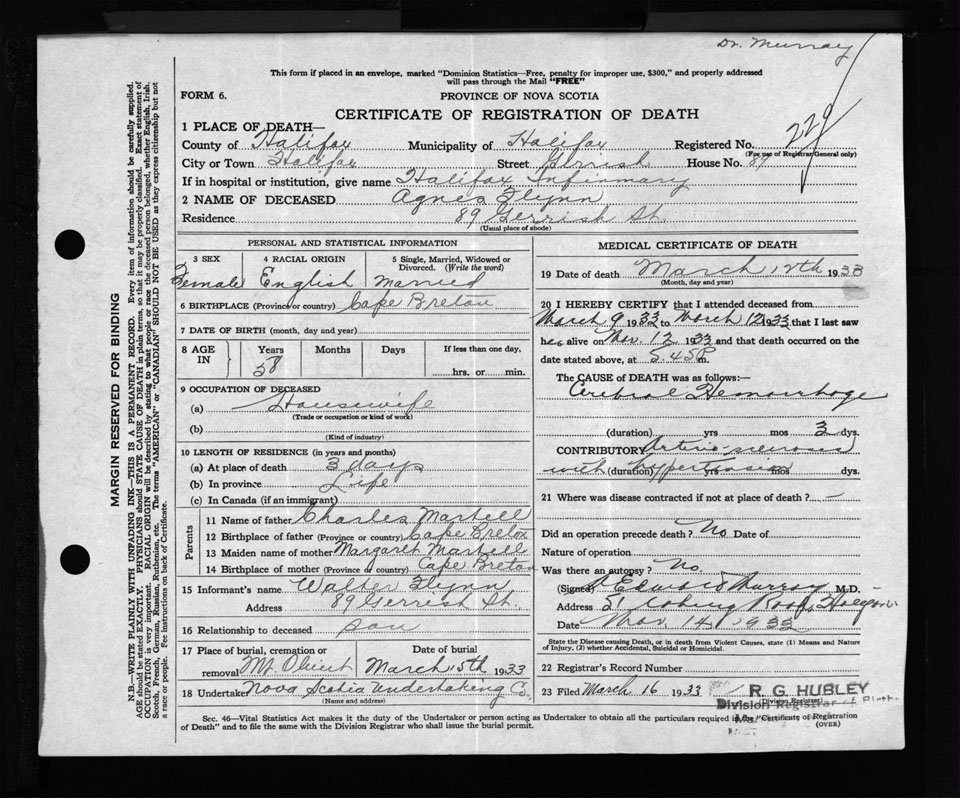 Dr. Murray
This form if placed in an envelope, marked "Dominion Statistics—Free, penalty for improper use, $300," and properly addressed
will pass through the Mail "FREE"
FORM 6.
PROVINCE OF NOVA SCOTIA
CERTIFICATE OF REGISTRATION OF DEATH
229
1 PLACE OF DEATH—
County of Halifax Municipality of Halifax Registered No.
(For use of Registrar General only)
City or Town Halifax Street Gerrish House No. 89
If in hospital or institution, give name Halifax Infirmary
2 NAME OF DECEASED Agnes Flynn
Residence 89 Gerrish St.
(Usual place of abode)
MARGIN RESERVED FOR BINDING
N.B.—WRITE PLAINLY WITH UNFADING INK—THIS IS A PERMANENT RECORD. Every item of information should be carefully supplied.
AGE should be stated EXACTLY. PHYSICIANS should STATE CAUSE OF DEATH in plain terms, so that it may be properly classified. Exact statement of
OCCUPATION is very important. RACIAL ORIGIN will be described by stating to what people or race the deceased person belonged, whether English, Irish,
Scotch, French, German, Russian, Ruthenian, etc. The terms "AMERICAN" or "CANADIAN" SHOULD NOT BE USED as they express citizenship but not
a race or people. See instructions on back of Certificate.
PERSONAL AND STATISTICAL INFORMATION
3 SEX 4 RACIAL ORIGIN 5 Single, Married, Widowed or
Divorced. (Write the word)
Female English Married
6 BIRTHPLACE (Province or country) Cape Breton
7 DATE OF BIRTH (month, day and year)
8 AGE IN Years Months Days If less than one day,
58 hrs. or min.
9 OCCUPATION OF DECEASED
(a) Housewife
(Trade or occupation or kind of work)
(b)
(Kind of industry)
10 LENGTH OF RESIDENCE (in years and months)
(a) At place of death 3 days
(b) In province Life
(c) In Canada (if an immigrant)
Parents
11 Name of father Charles Martell
12 Birthplace of father (Province or country) Cape Breton
13 Maiden name of mother Margaret Martell
14 Birthplace of mother (Province or country) Cape Breton
15 Informant's name Walter Flynn
Address 89 Gerrish St.
16 Relationship to deceased son
17 Place of burial, cremation or Date of burial
removal Mt Olivet March 15th 1933
18 Undertaker Nova Scotia Undertaking Co.
(Name and address)
MEDICAL CERTIFICATE OF DEATH
19 Date of death March 12th 1933
(Month, day and year)
20 I HEREBY CERTIFY that I attended deceased from
March 9 1933 to March 12 1933 that I last saw
her alive on Mar. 12 1933 and that death occurred on the
date stated above, at 5.45 P m.
The CAUSE OF DEATH was as follows:—
Cerebral Hemorrhage
(duration) yrs mos 3 dys.
CONTRIBUTORY Arterio sclerosis
with (duration) hypertension yrs mos dys.
21 Where was disease contracted if not at place of death? —
Did an operation precede death? No Date of
Nature of operation
Was there an autopsy? No.
(Signed) Murray M.D.
Address Roads Halifax
Date Mar. 14 1933
State the Disease causing Death, or in death from Violent Causes, state (1) Means and Nature
of Injury, (2) whether Accidental, Suicidal or Homicidal.
22 Registrar's Record Number
23 Filed March 16 1933 R. G. HUBLEY
(Division Registrar)
Division Registrar of Births
Sec. 46—Vital Statistics Act makes it the duty of the Undertaker or person acting as Undertaker to obtain all the particulars required in the "Certificate of Registration
of Death" and to file the same with the Division Registrar who shall issue the burial permit.
(OVER)